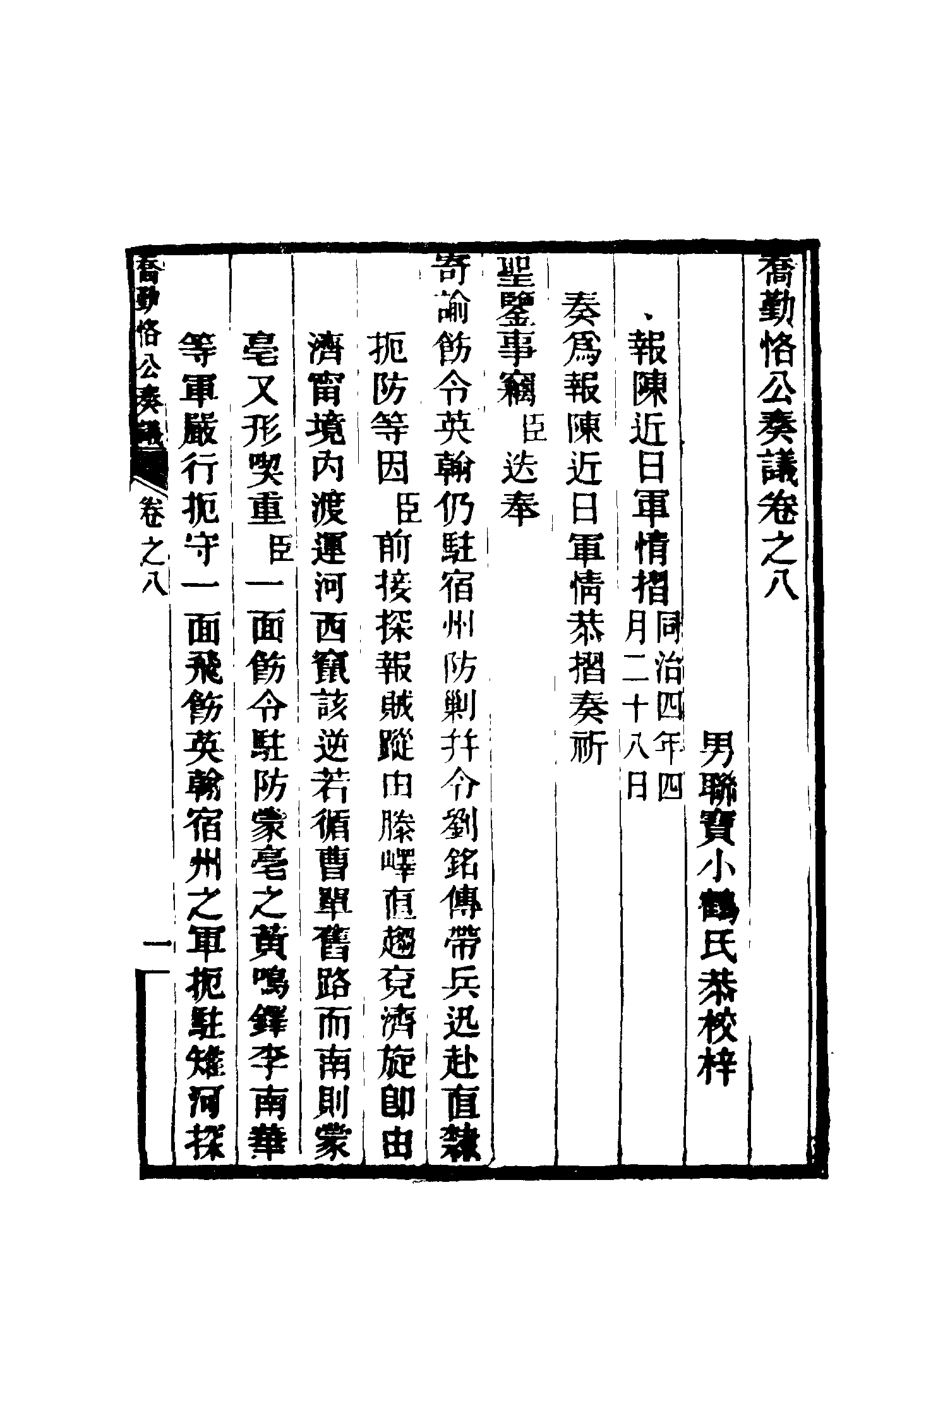 喬勤恪公奏議卷之八
男聯寶小鶴氏恭校梓
報陳近日軍情摺同治四年四月二十八日
奏爲報陳近日軍情恭摺奏祈
聖鑒事竊臣迭奉
寄諭飭令英翰仍駐宿州防剿幷令劉銘傳帶兵迅赴直隸
扼防等因臣前接探報賊蹤由滕嶧直趨兗濟旋卽由
濟甯境內渡運河西竄該逆若循曹單舊路而南則蒙
亳又形喫重臣一面飭令駐防蒙亳之黃鳴鐸李南華
等軍嚴行扼守一面飛飭英翰宿州之軍扼駐雉河探
喬勤恪公奏議 卷之八 一